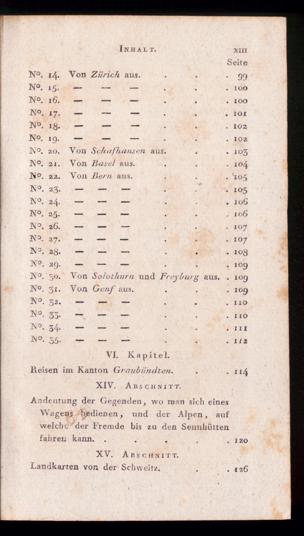 INHALT. XIII
Seite
No. 14. Von Zürich aus. . . . 99
No. 15. — — — . . . 100
No. 16. — — — . . . 100
No. 17. — — — . . . 101
No. 18. — — — . . . 102
No. 19. — — — . . . 102
No. 20. Von Schafhausen aus. . . 103
No. 21. Von Basel aus. . . . 104
No. 22. Von Bern aus. . . . 105
No. 23. — — — . . . 105
No. 24. — — — . . . 106
No. 25. — — — . . . 106
No. 26. — — — . . . 107
No. 27. — — — . . . 107
No. 28. — — — . . . 108
No. 29. — — — . . . 109
No. 30. Von Solothurn und Freyburg aus. . 109
No. 31. Von Genf aus. . . . 109
No. 32. — — — . . . 110
No. 33. — — — . . . 110
No. 34. — — — . . . 111
No. 35. — — — . . . 112
VI. Kapitel.
Reisen im Kanton Graubündten. . . 114
XIV. ABSCHNITT.
Andeutung der Gegenden, wo man sich eines
Wagens bedienen, und der Alpen, auf
welche der Fremde bis zu den Sennhütten
fahren kann. . . . . . 120
XV. ABSCHNITT.
Landkarten von der Schweitz. . . 126